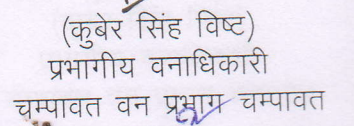 (कुबेर सिंह विष्ट)
प्रभागीय वनाधिकारी
चम्पावत वन प्रभाग चम्पावत